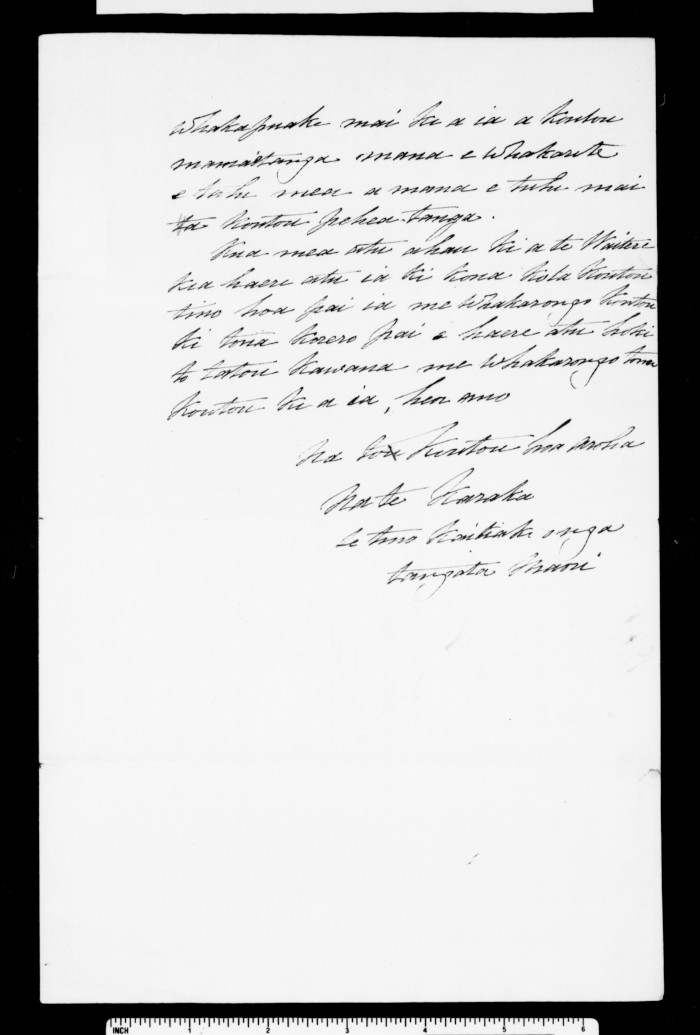 whakapuake mai ki a ia a koutou
mamaetanga mana e whakarite
e tahi mea a mana e tuhi mai
ta koutou peheatanga.
Kua mea atu ahau ki a te Waitere
kia haere atu ia ki kona ko ta koutou
tino hoa pai ia me whakarongo koutou
ki tona korero pai e haere atu hoki
to tatou Kawana me whakarongo tonu
koutou ki a ia, heoi ano
Na to koutou hoa aroha
Na te Karaka
te tino Kaitiaki o nga
tangata Maori
INCH 1 2 3 4 5 6